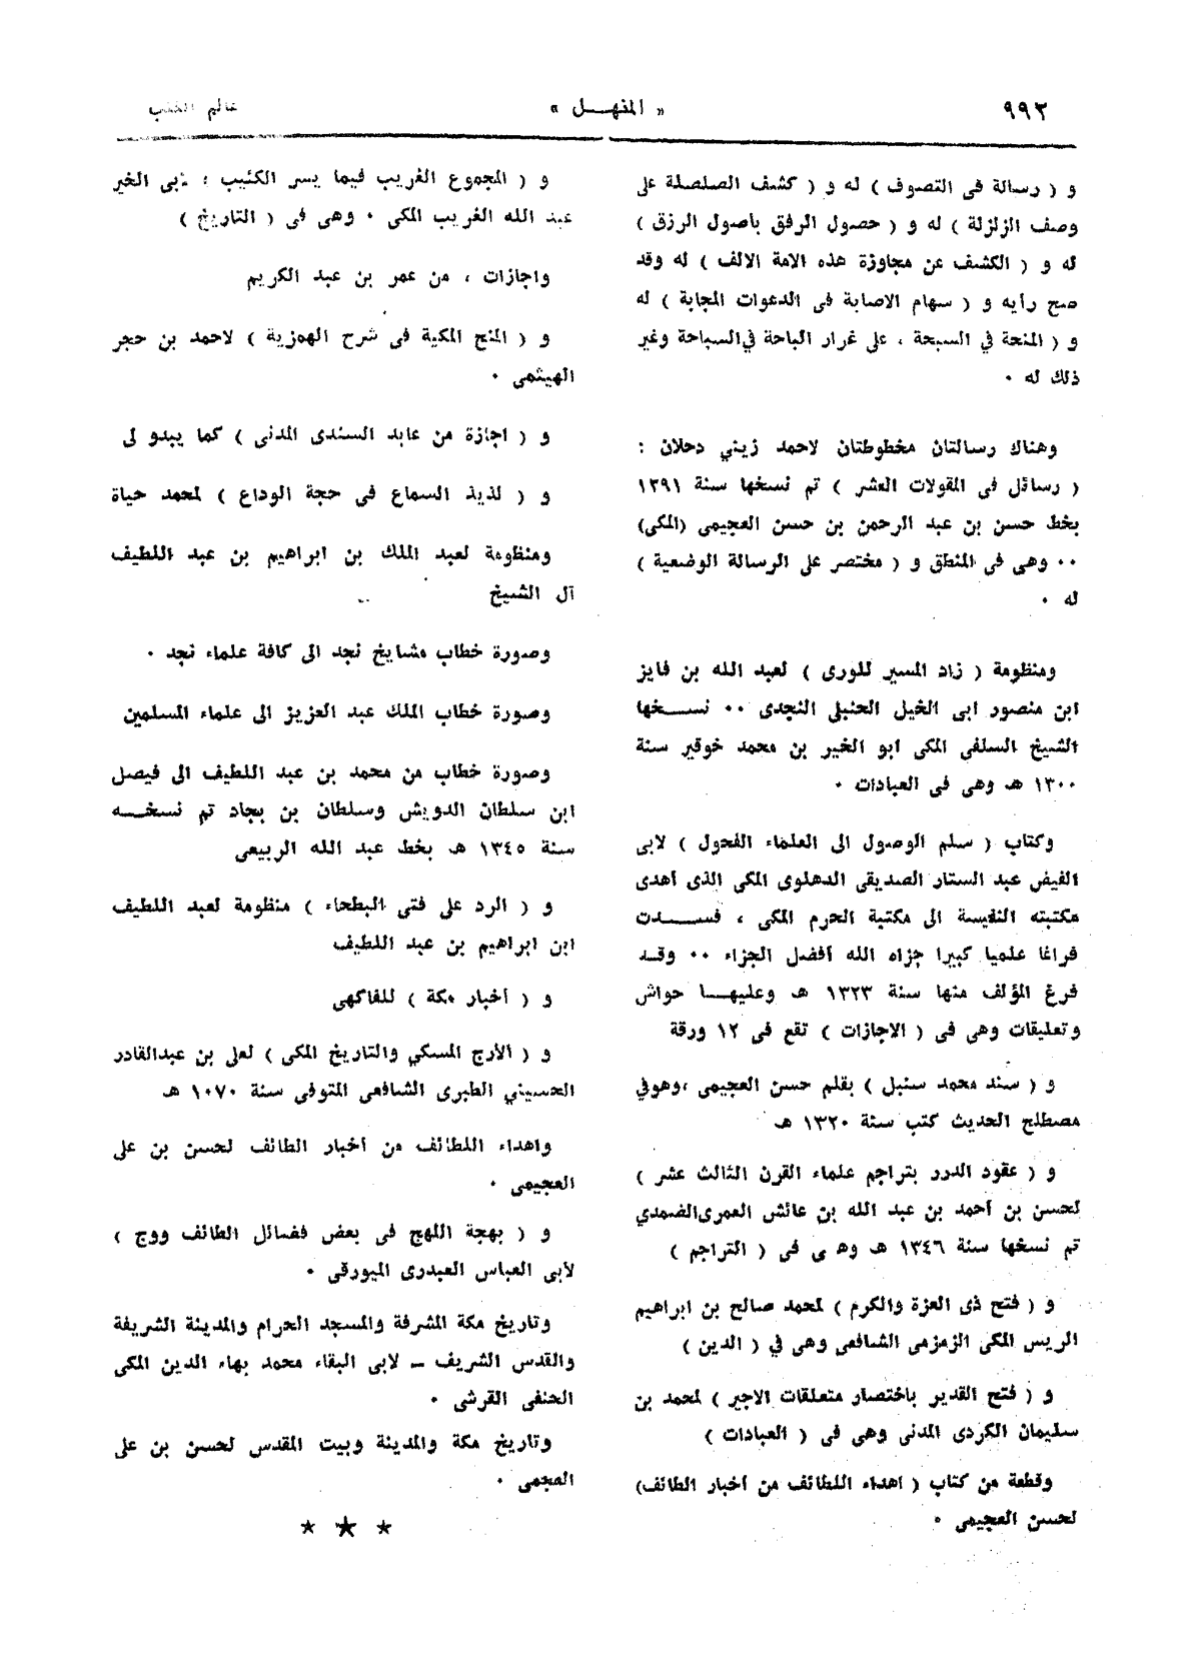 ٩٩٢
« المنهــل »
عالم الكتب
و ( رسالة فى التصوف ) له و ( كشف الصلصلة على
وصف الزلزلة ) له و ( حصول الرفق بأصول الرزق )
له و ( الكشف عن مجاوزة هذه الامة الالف ) له وقد
صح رأيه و ( سهام الاصابة فى الدعوات المجابة ) له
و ( المنحة في السبحة ، على غرار الباحة في السباحة وغير
ذلك له ٠
وهناك رسالتان مخطوطتان لاحمد زيني دحلان :
( رسائل فى المقولات العشر ) تم نسخها سنة ١٢٩١
بخط حسن بن عبد الرحمن بن حسن العجيمى (المكى)
٠٠ وهى فى المنطق و ( مختصر على الرسالة الوضعية )
له ٠
ومنظومة ( زاد المسير للورى ) لعبد الله بن فايز
ابن منصور ابى الخيل الحنبلى النجدى ٠٠ نســخها
الشيخ السلفى المكى ابو الخير بن محمد خوقير سنة
١٣٠٠ هـ وهى فى العبادات ٠
وكتاب ( سلم الوصول الى العلماء الفحول ) لابى
الفيض عبد الستار الصديقى الدهلوى المكى الذى أهدى
مكتبته النفيسة الى مكتبة الحرم المكى ، فســـدت
فراغا علميا كبيرا جزاه الله أفضل الجزاء ٠٠ وقـد
فرغ المؤلف منها سنة ١٣٢٣ هـ وعليهــا حواش
وتعليقات وهى فى ( الاجازات ) تقع فى ١٢ ورقة
و ( سند محمد سنبل ) بقلم حسن العجيمى ،وهوفي
مصطلح الحديث كتب سنة ١٣٢٠ هـ
و ( عقود الدرر بتراجم علماء القرن الثالث عشر )
لحسن بن أحمد بن عبد الله بن عائش العمرى الضمدي
تم نسخها سنة ١٣٤٦ هـ وهـى فى ( التراجم )
و ( فتح ذى العزة والكرم ) لمحمد صالح بن ابراهيم
الريس المكى الزمزمى الشافعى وهى في ( الدين )
و ( فتح القدير باختصار متعلقات الاجير ) لمحمد بن
سليمان الكردى المدنى وهى فى ( العبادات )
وقطعة من كتاب ( اهداء اللطائف من أخبار الطائف)
لحسن العجيمى ٠
و ( المجموع الغريب فيما يسر الكئيب ؛ لابى الخير
عبد الله الغريب المكى ٠ وهى فى ( التاريخ )
واجازات ، من عمر بن عبد الكريم
و ( المنح المكية فى شرح الهمزية ) لاحمد بن حجر
الهيثمى ٠
و ( اجازة من عابد السندى المدنى ) كما يبدو لى
و ( لذيذ السماع فى حجة الوداع ) لمحمد حياة
ومنظومة لعبد الملك بن ابراهيم بن عبد اللطيف
آل الشيخ
وصورة خطاب مشايخ نجد الى كافة علماء نجد ٠
وصورة خطاب الملك عبد العزيز الى علماء المسلمين
وصورة خطاب من محمد بن عبد اللطيف الى فيصل
ابن سلطان الدويش وسلطان بن بجاد تم نسخــه
سنة ١٣٤٥ هـ بخط عبد الله الربيعى
و ( الرد على فتى البطحاء ) منظومة لعبد اللطيف
ابن ابراهيم بن عبد اللطيف
و ( أخبار مكة ) للفاكهى
و ( الأرج المسكي والتاريخ المكى ) لعلى بن عبدالقادر
الحسيني الطبرى الشافعى المتوفى سنة ١٠٧٠ هـ
واهداء اللطائف من أخبار الطائف لحسن بن على
العجيمى ٠
و ( بهجة اللهج فى بعض فضائل الطائف ووج )
لأبى العباس العبدرى الميورقى ٠
وتاريخ مكة المشرفة والمسجد الحرام والمدينة الشريفة
والقدس الشريف ــ لابى البقاء محمد بهاء الدين المكى
الحنفى القرشى ٠
وتاريخ مكة والمدينة وبيت المقدس لحسن بن على
العجمى ٠
★ ★ ★